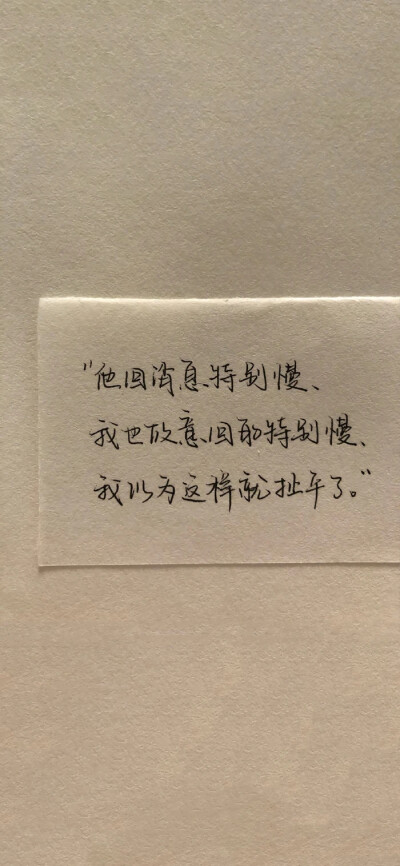 "他回消息特别慢、
我也故意回的特别慢、
我以为这样就扯平了。"